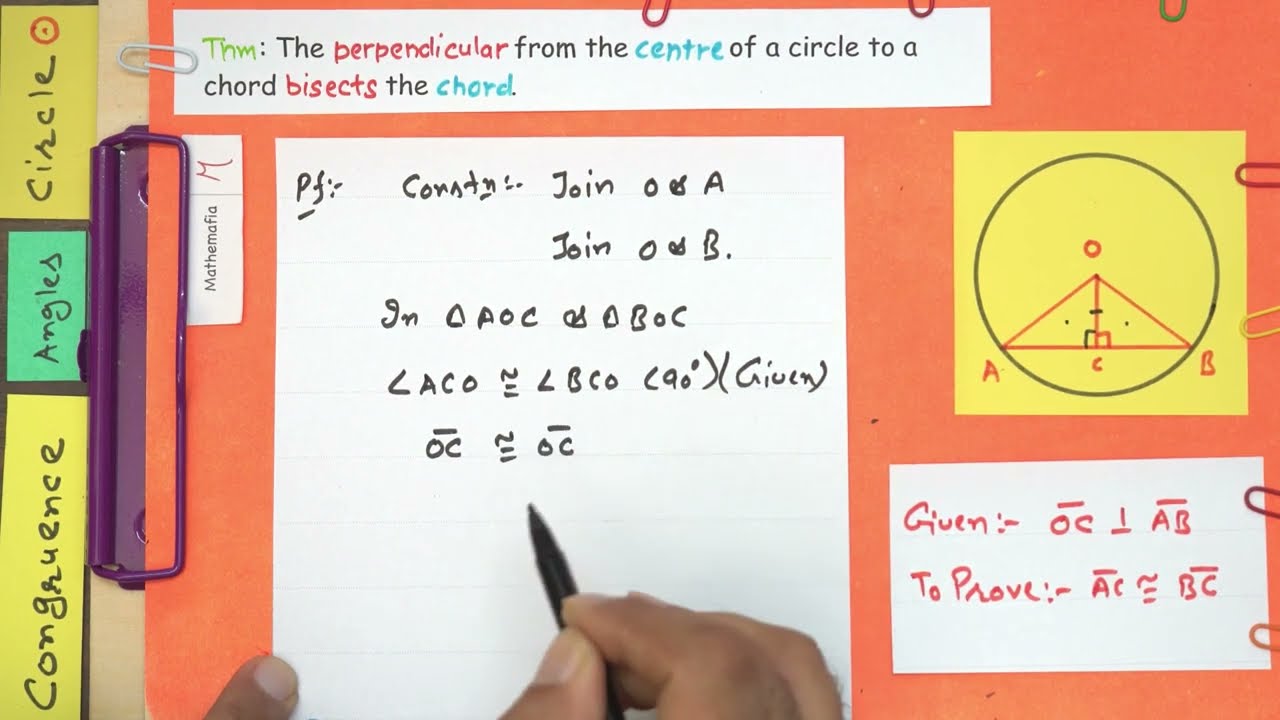 Circle
Angles
Congruence
M
Mathemafia
Thm: The perpendicular from the centre of a circle to a
chord bisects the chord.
Pf:- Constn:- Join O & A
Join O & B.
In Δ AOC & Δ BOC
∠ACO ≅ ∠BCO (90°)(Given)
O̅C̅ ≅ O̅C̅
O
A
C
B
Given:- O̅C̅ ⊥ A̅B̅
To Prove:- A̅C̅ ≅ B̅C̅